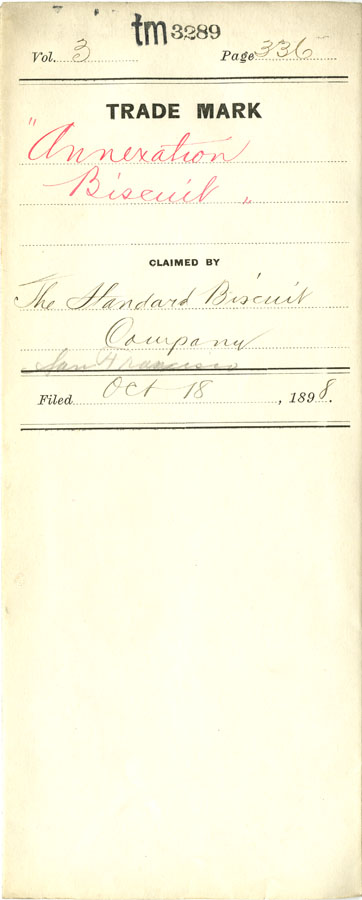 tm 3289
Vol. 3 Page 336
TRADE MARK
"Annexation
Biscuit "
CLAIMED BY
The Standard Biscuit
Company
San Francisco
Filed Oct 18, 1898.